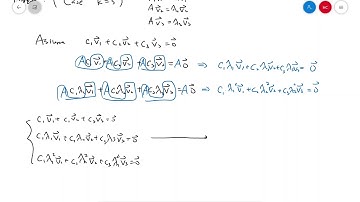 (Case k=3)
A v⃗₂ = λ₂v⃗₂
A v⃗₃ = λ₃v⃗₃
Assume c₁v⃗₁ + c₂v⃗₂ + c₃v⃗₃ = 0⃗
Ac₁v⃗₁ + Ac₂v⃗₂ + Ac₃v⃗₃ = A0⃗ ⇒ c₁λ₁v⃗₁ + c₂λ₂v⃗₂ + c₃λ₃v⃗₃ = 0⃗
Ac₁λ₁v⃗₁ + Ac₂λ₂v⃗₂ + Ac₃λ₃v⃗₃ = A0⃗ ⇒ c₁λ₁²v⃗₁ + c₂λ₂²v⃗₂ + c₃λ₃²v⃗₃ = 0⃗
c₁v⃗₁ + c₂v⃗₂ + c₃v⃗₃ = 0⃗
c₁λ₁v⃗₁ + c₂λ₂v⃗₂ + c₃λ₃v⃗₃ = 0⃗
c₁λ₁²v⃗₁ + c₂λ₂²v⃗₂ + c₃λ₃²v⃗₃ = 0⃗